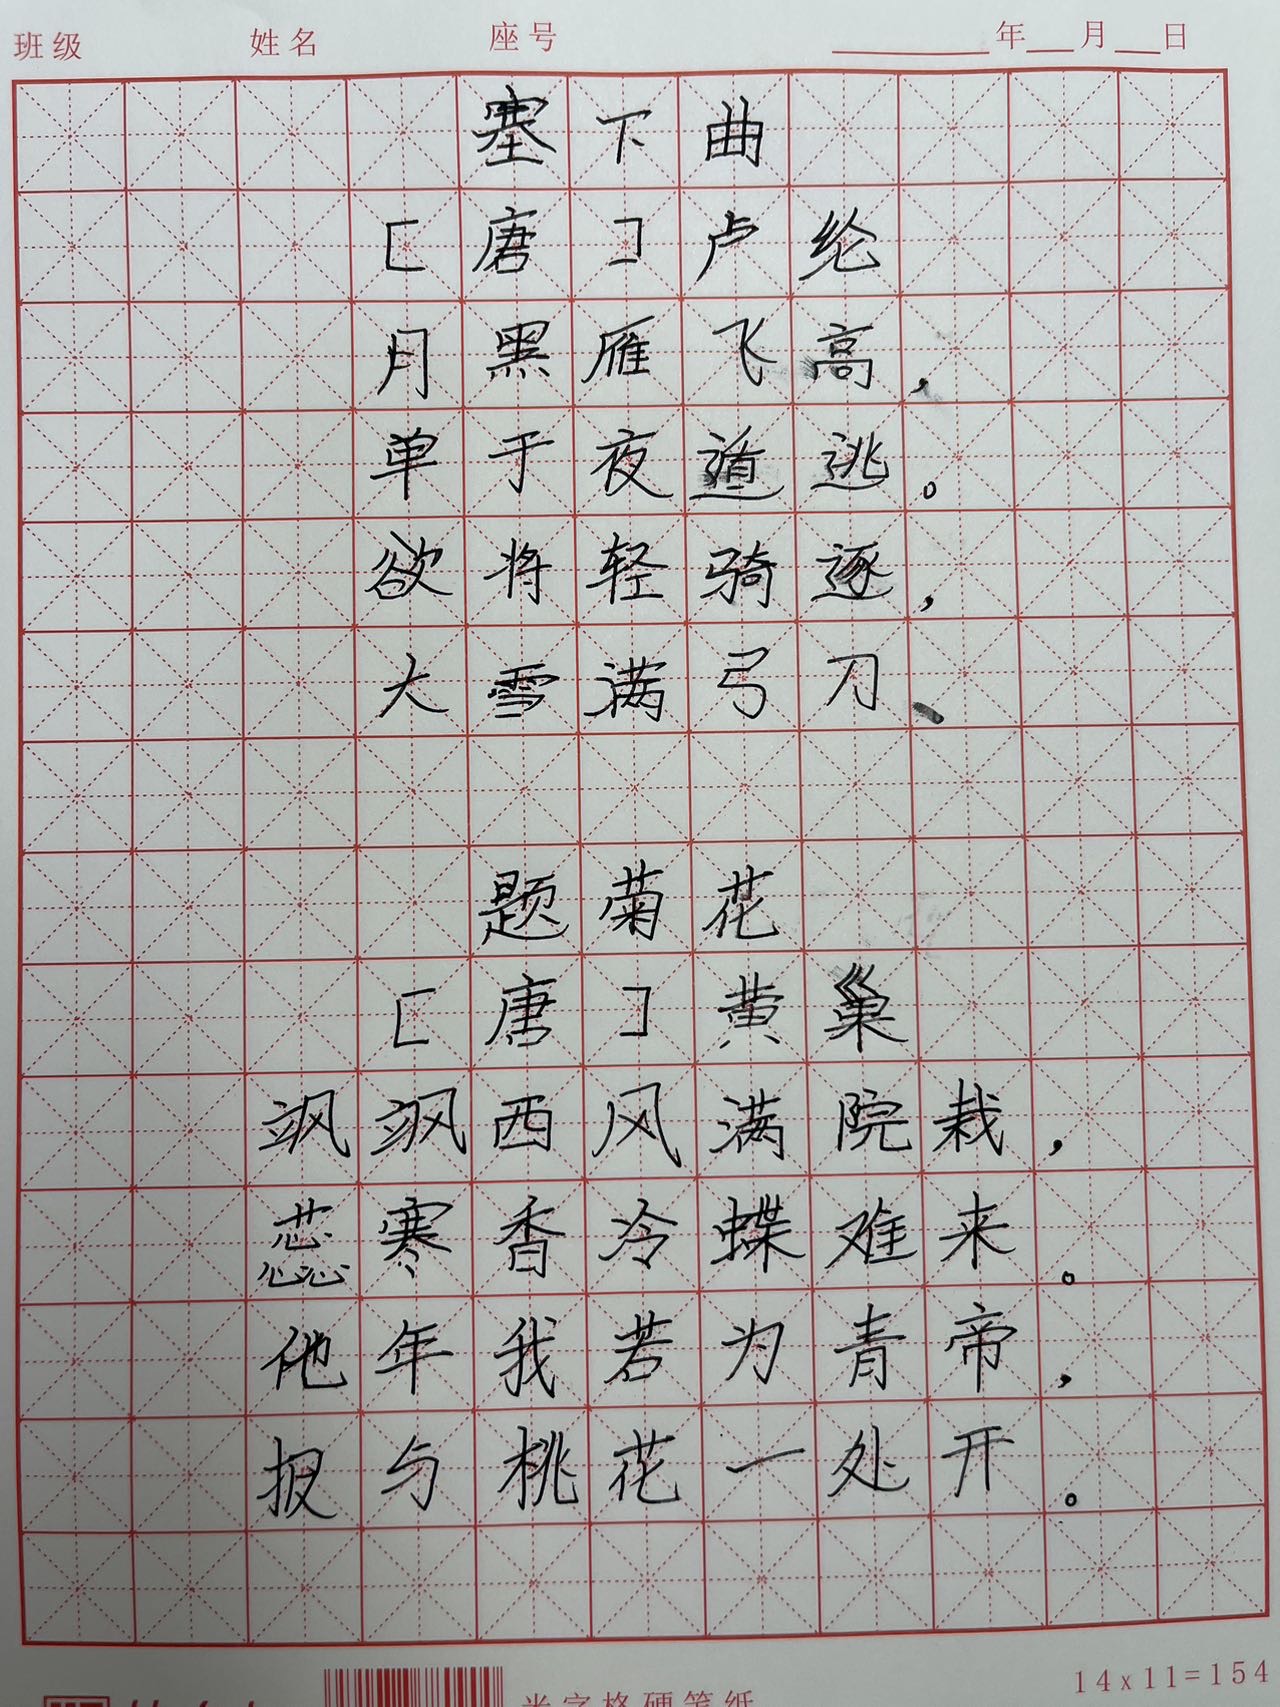 班级 姓名 座号 年 月 日
塞下曲
[唐]卢纶
月黑雁飞高，
单于夜遁逃。
欲将轻骑逐，
大雪满弓刀
题菊花
[唐]黄巢
飒飒西风满院栽，
蕊寒香冷蝶难来。
他年我若为青帝，
报与桃花一处开。
米字格硬笔纸
14x11=154